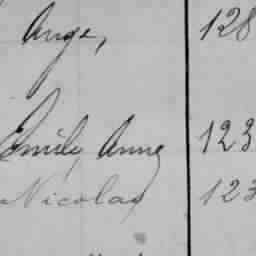 Ange, 128
Emily Anne 123
Nicolas 123